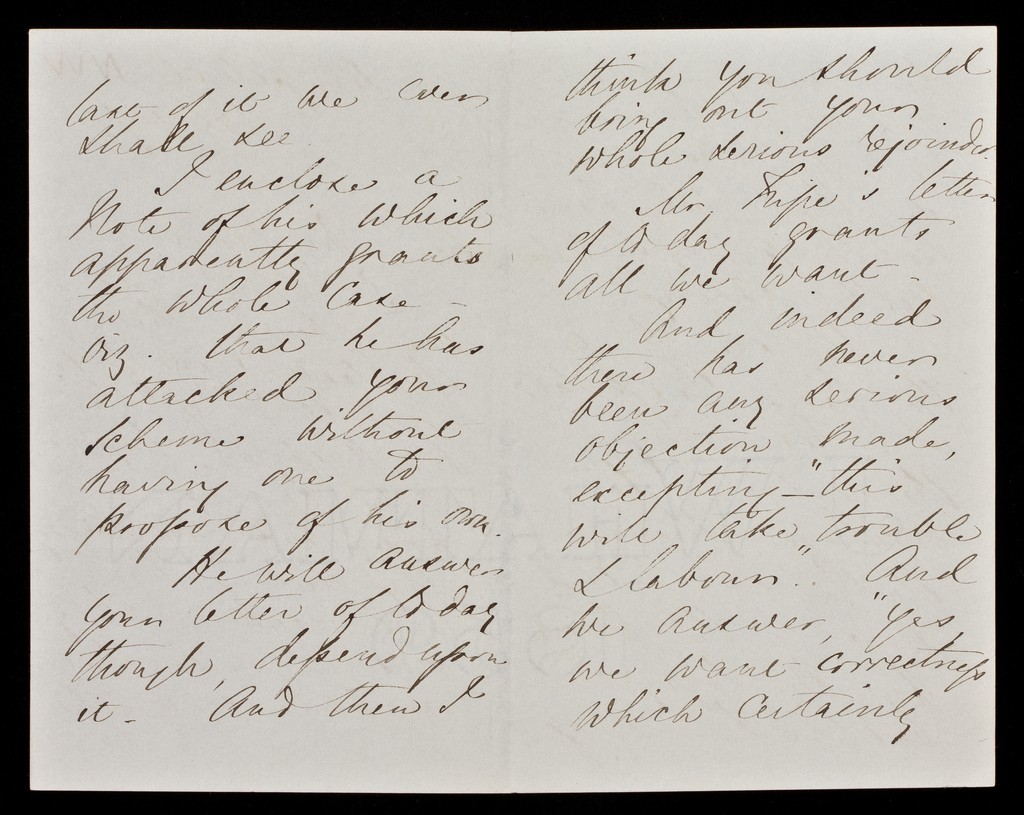 last of it we ever
shall see.
I enclose a
Note of his which
apparently grants
the whole case -
viz. that he has
attacked your
scheme without
having one to
propose of his own.
He will answer
your letter of to day
though, depend upon
it. And then I
think you should
bring out your
whole serious rejoinder.
Mr. Fripe's letter
of to day grants
all we want -
And indeed
there has never
been any serious
objection made,
excepting - "this
will take trouble
& labour". And
we answer, "Yes,
we want correctness
which certainly